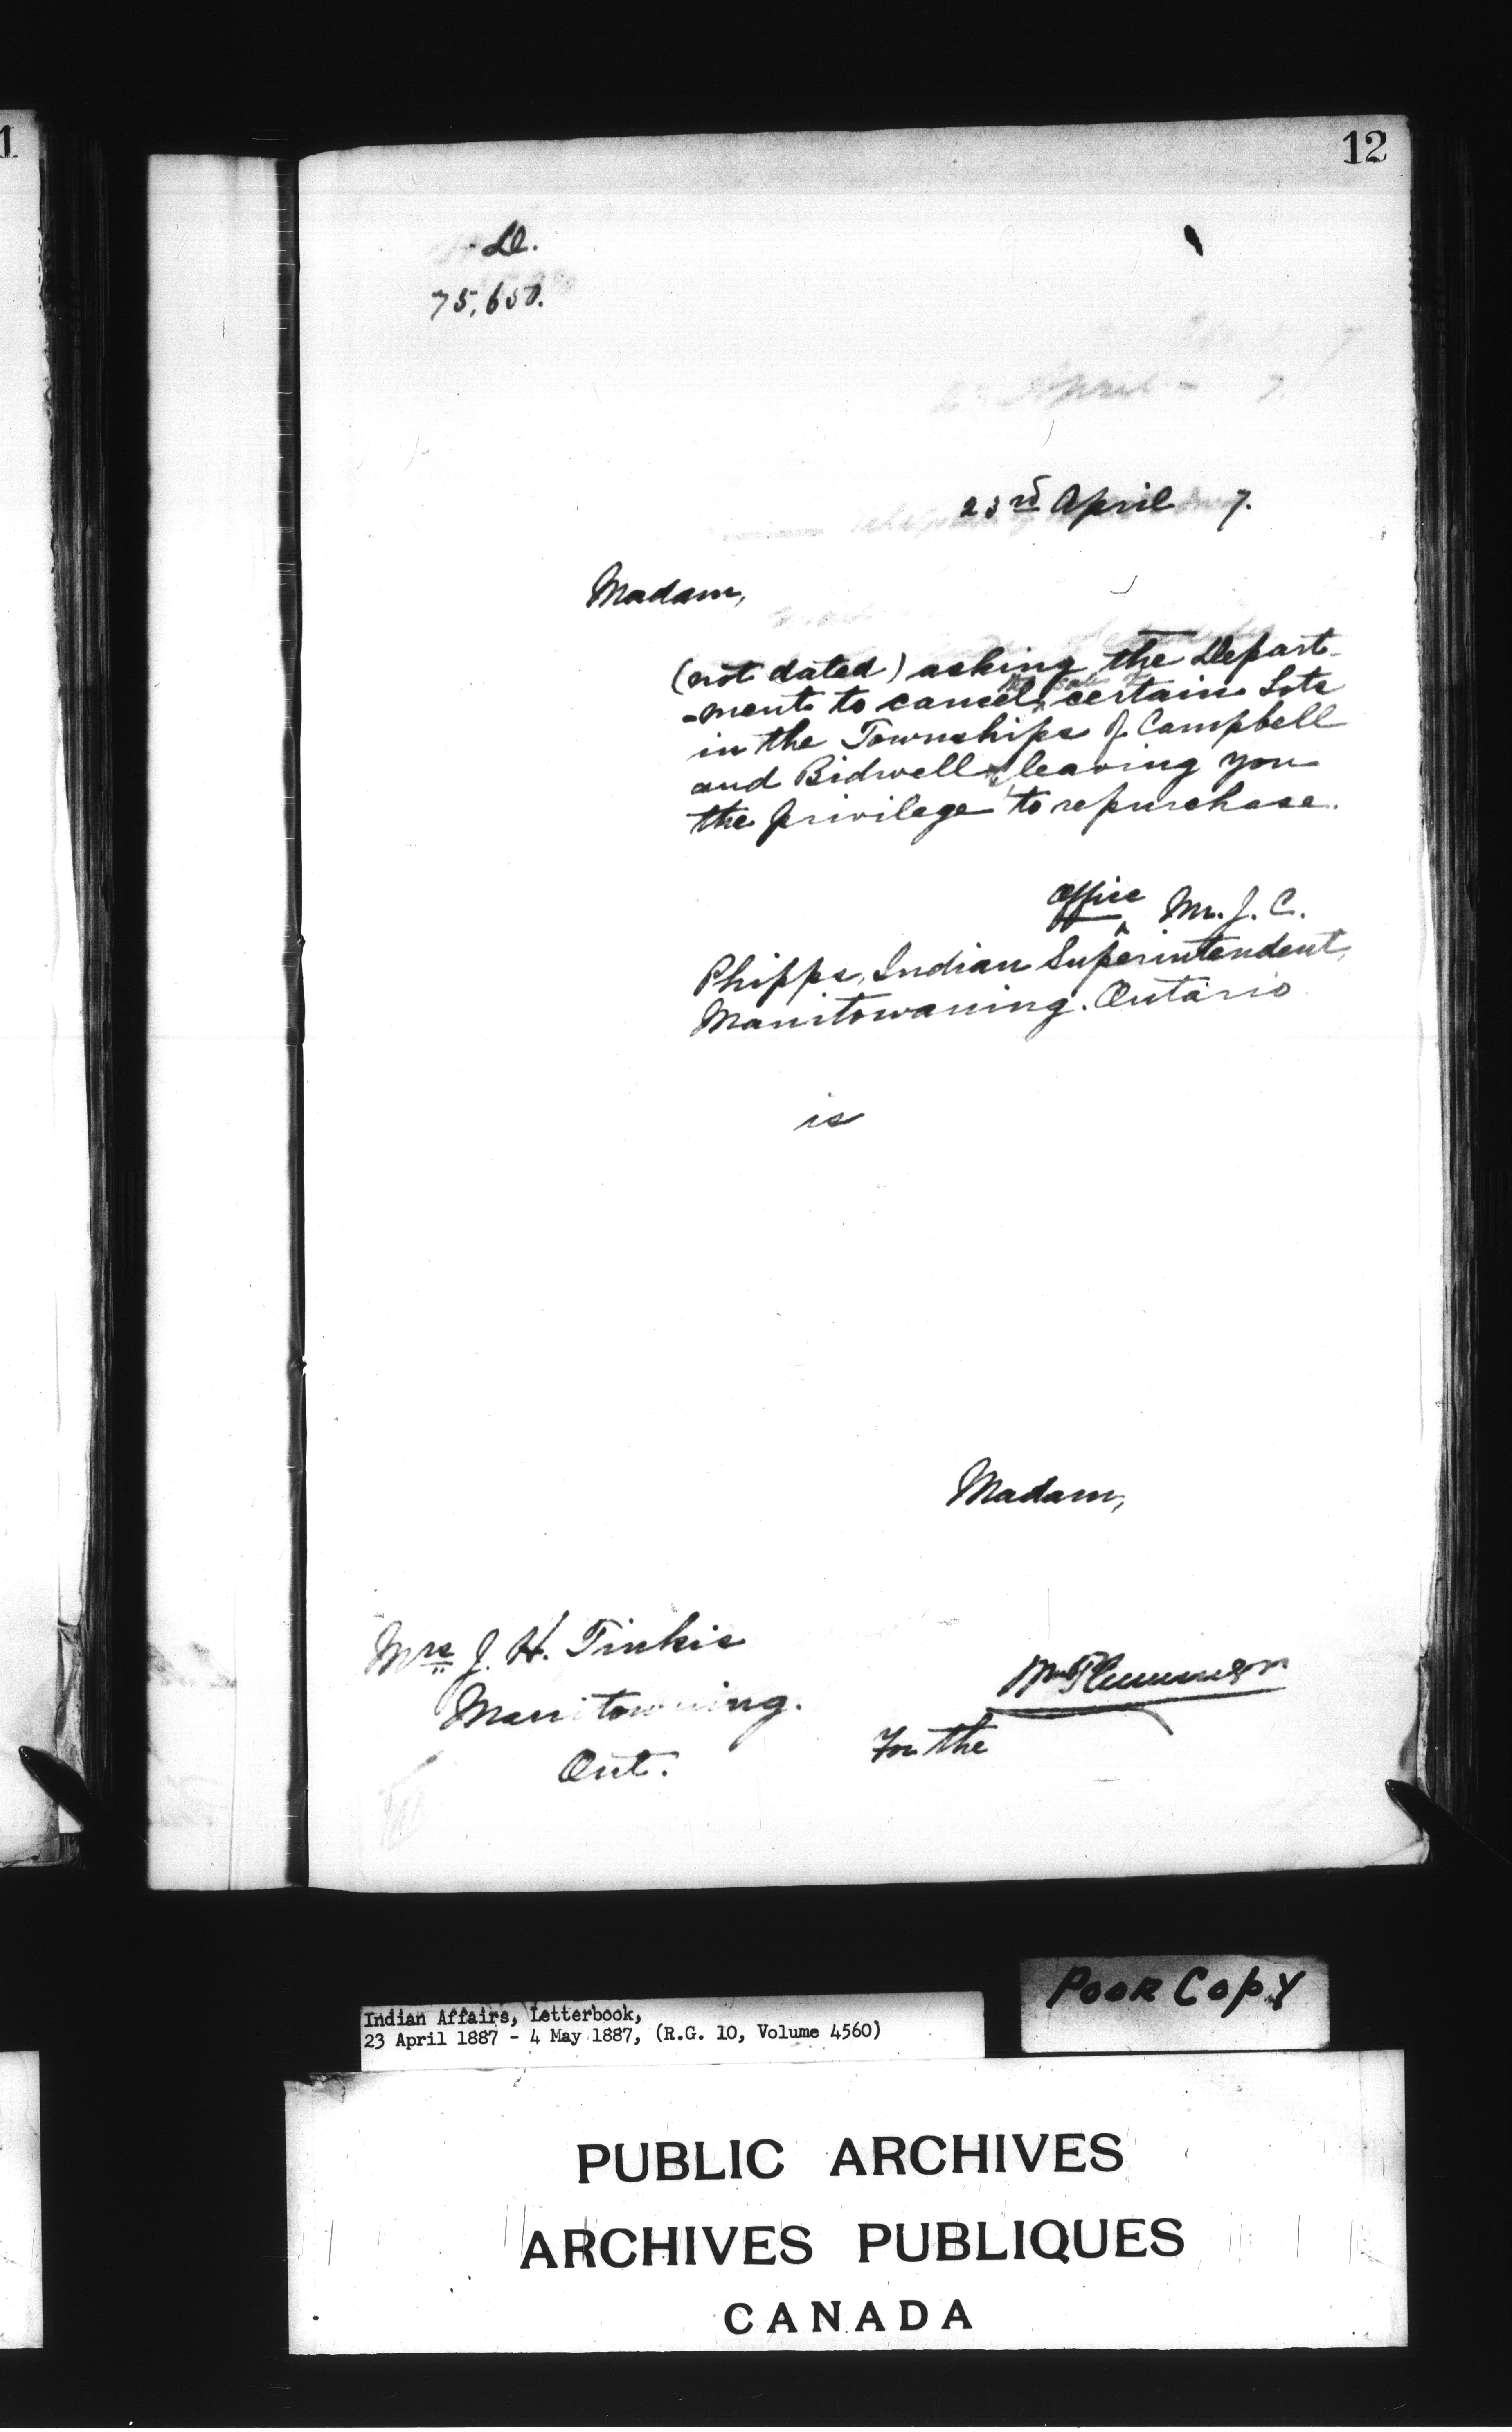 12
D.
75,650.
23rd April 7.
Madam,
(not dated) asking the Depart-
-ment to cancel the sale of certain Lots
in the Townships of Campbell
and Bidwell leaving you
the privilege to repurchase.
Office Mr. J. C.
Phipps, Indian Superintendent,
Manitowaning. Ontario
is
Madam,
Mrs J. H. Tinkis
Manitowning.
Ont.
Wm Plummer
For the
Poor Copy
Indian Affairs, Letterbook,
23 April 1887 - 4 May 1887, (R.G. 10, Volume 4560)
PUBLIC ARCHIVES
ARCHIVES PUBLIQUES
CANADA